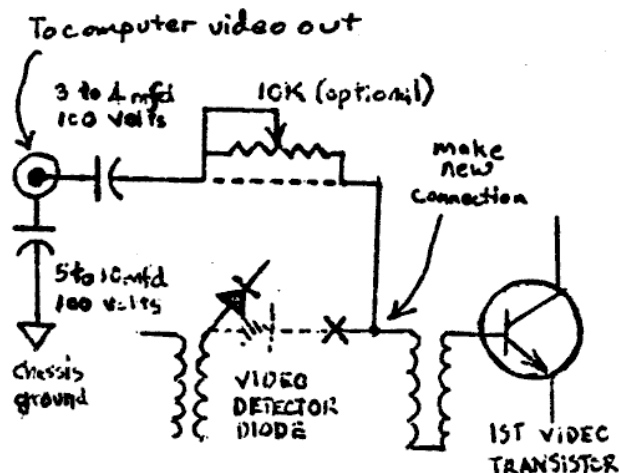 To computer video out
3 to 4 mfd
100 volts
10K (optional)
make
new
connection
5 to 10 mfd
100 volts
chassis
ground
VIDEO
DETECTOR
DIODE
1ST VIDEO
TRANSISTER